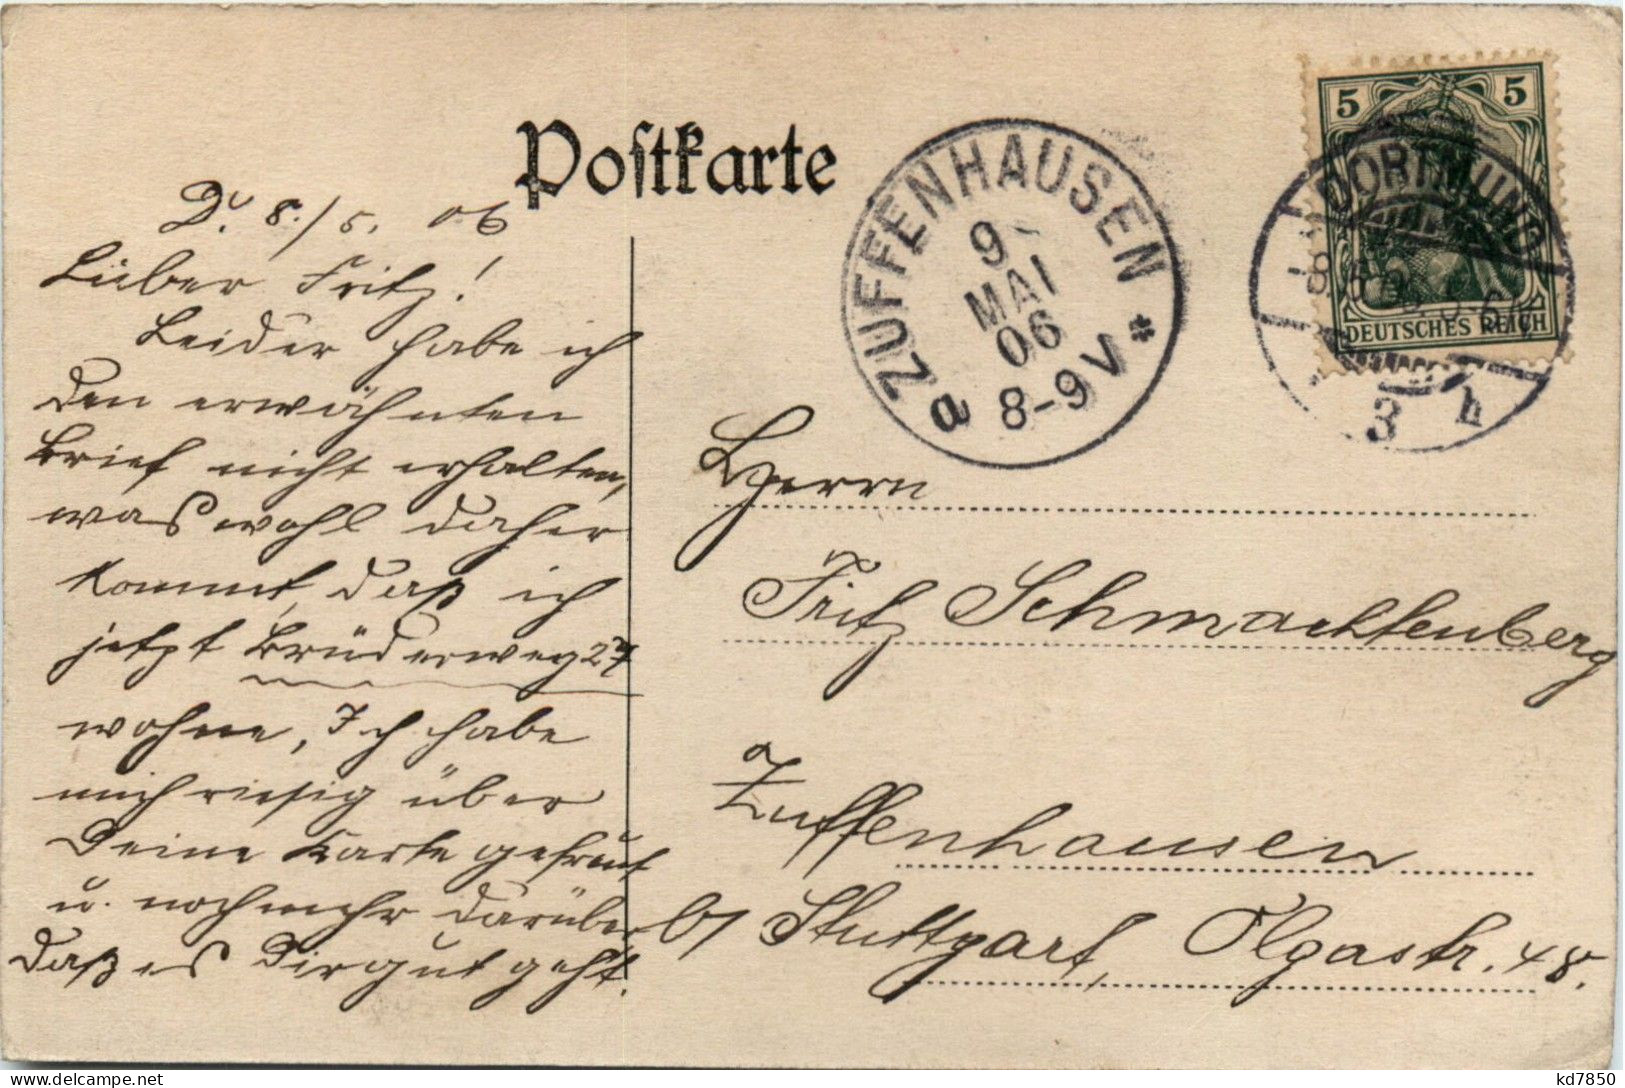 Postkarte
D. 8./5. 06
Lieber Fritz!
Leider habe ich
den erwähnten
Brief nicht erhalten,
was wohl daher
kommt, daß ich
jetzt Brüderweg 27
wohne, Ich habe
mich riesig über
Deine Karte gefreut
u. noch mehr darüber
daß es Dir gut geht.
ZUFFENHAUSEN
9
MAI
06
8-9 V
a
*
5 5
DEUTSCHES REICH
DORTMUND
3 h
Herrn
Fritz Schmachtenberg
Zuffenhausen
b/ Stuttgart, Olgastr. 48.
kd7850